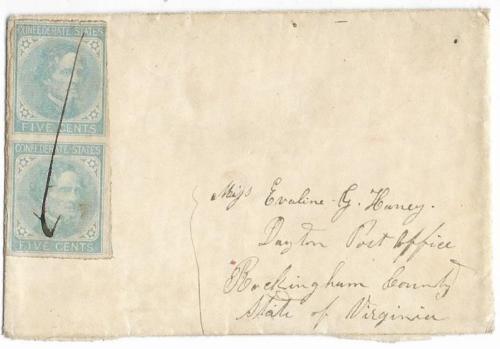 CONFEDERATE STATES
FIVE CENTS
CONFEDERATE STATES
FIVE CENTS
Miss Evaline G. Haney.
Dayton Post office
Rockingham County
State of Virginia